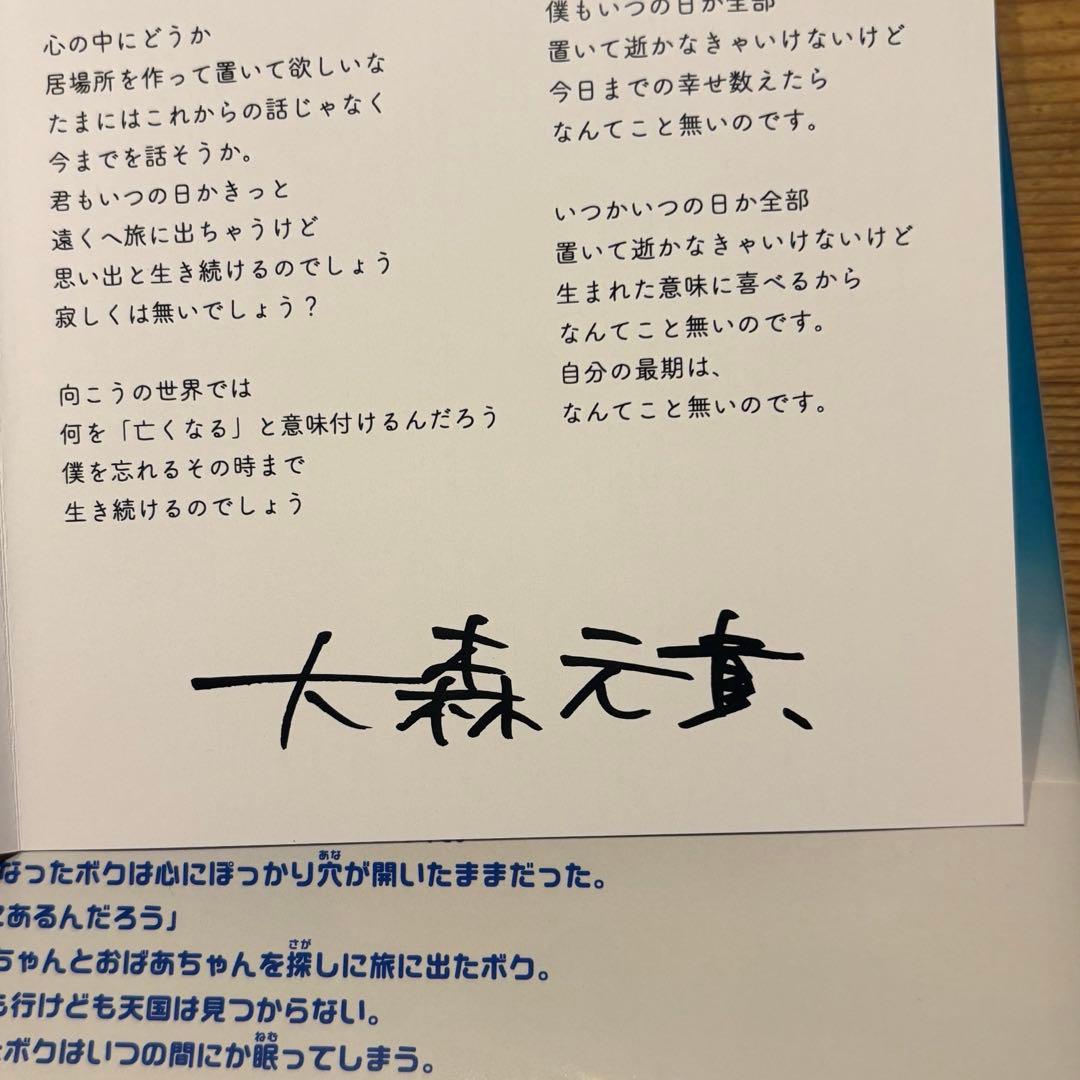 心の中にどうか
居場所を作って置いて欲しいな
たまにはこれからの話じゃなく
今までを話そうか。
君もいつの日かきっと
遠くへ旅に出ちゃうけど
思い出と生き続けるのでしょう
寂しくは無いでしょう？
向こうの世界では
何を「亡くなる」と意味付けるんだろう
僕を忘れるその時まで
生き続けるのでしょう
僕もいつの日か全部
置いて逝かなきゃいけないけど
今日までの幸せ数えたら
なんてこと無いのです。
いつかいつの日か全部
置いて逝かなきゃいけないけど
生まれた意味に喜べるから
なんてこと無いのです。
自分の最期は、
なんてこと無いのです。
大森元貴、
なったボクは心にぽっかり穴が開いたままだった。
あるんだろう」
ちゃんとおばあちゃんを探しに旅に出たボク。
行けども天国は見つからない。
ボクはいつの間にか眠ってしまう。